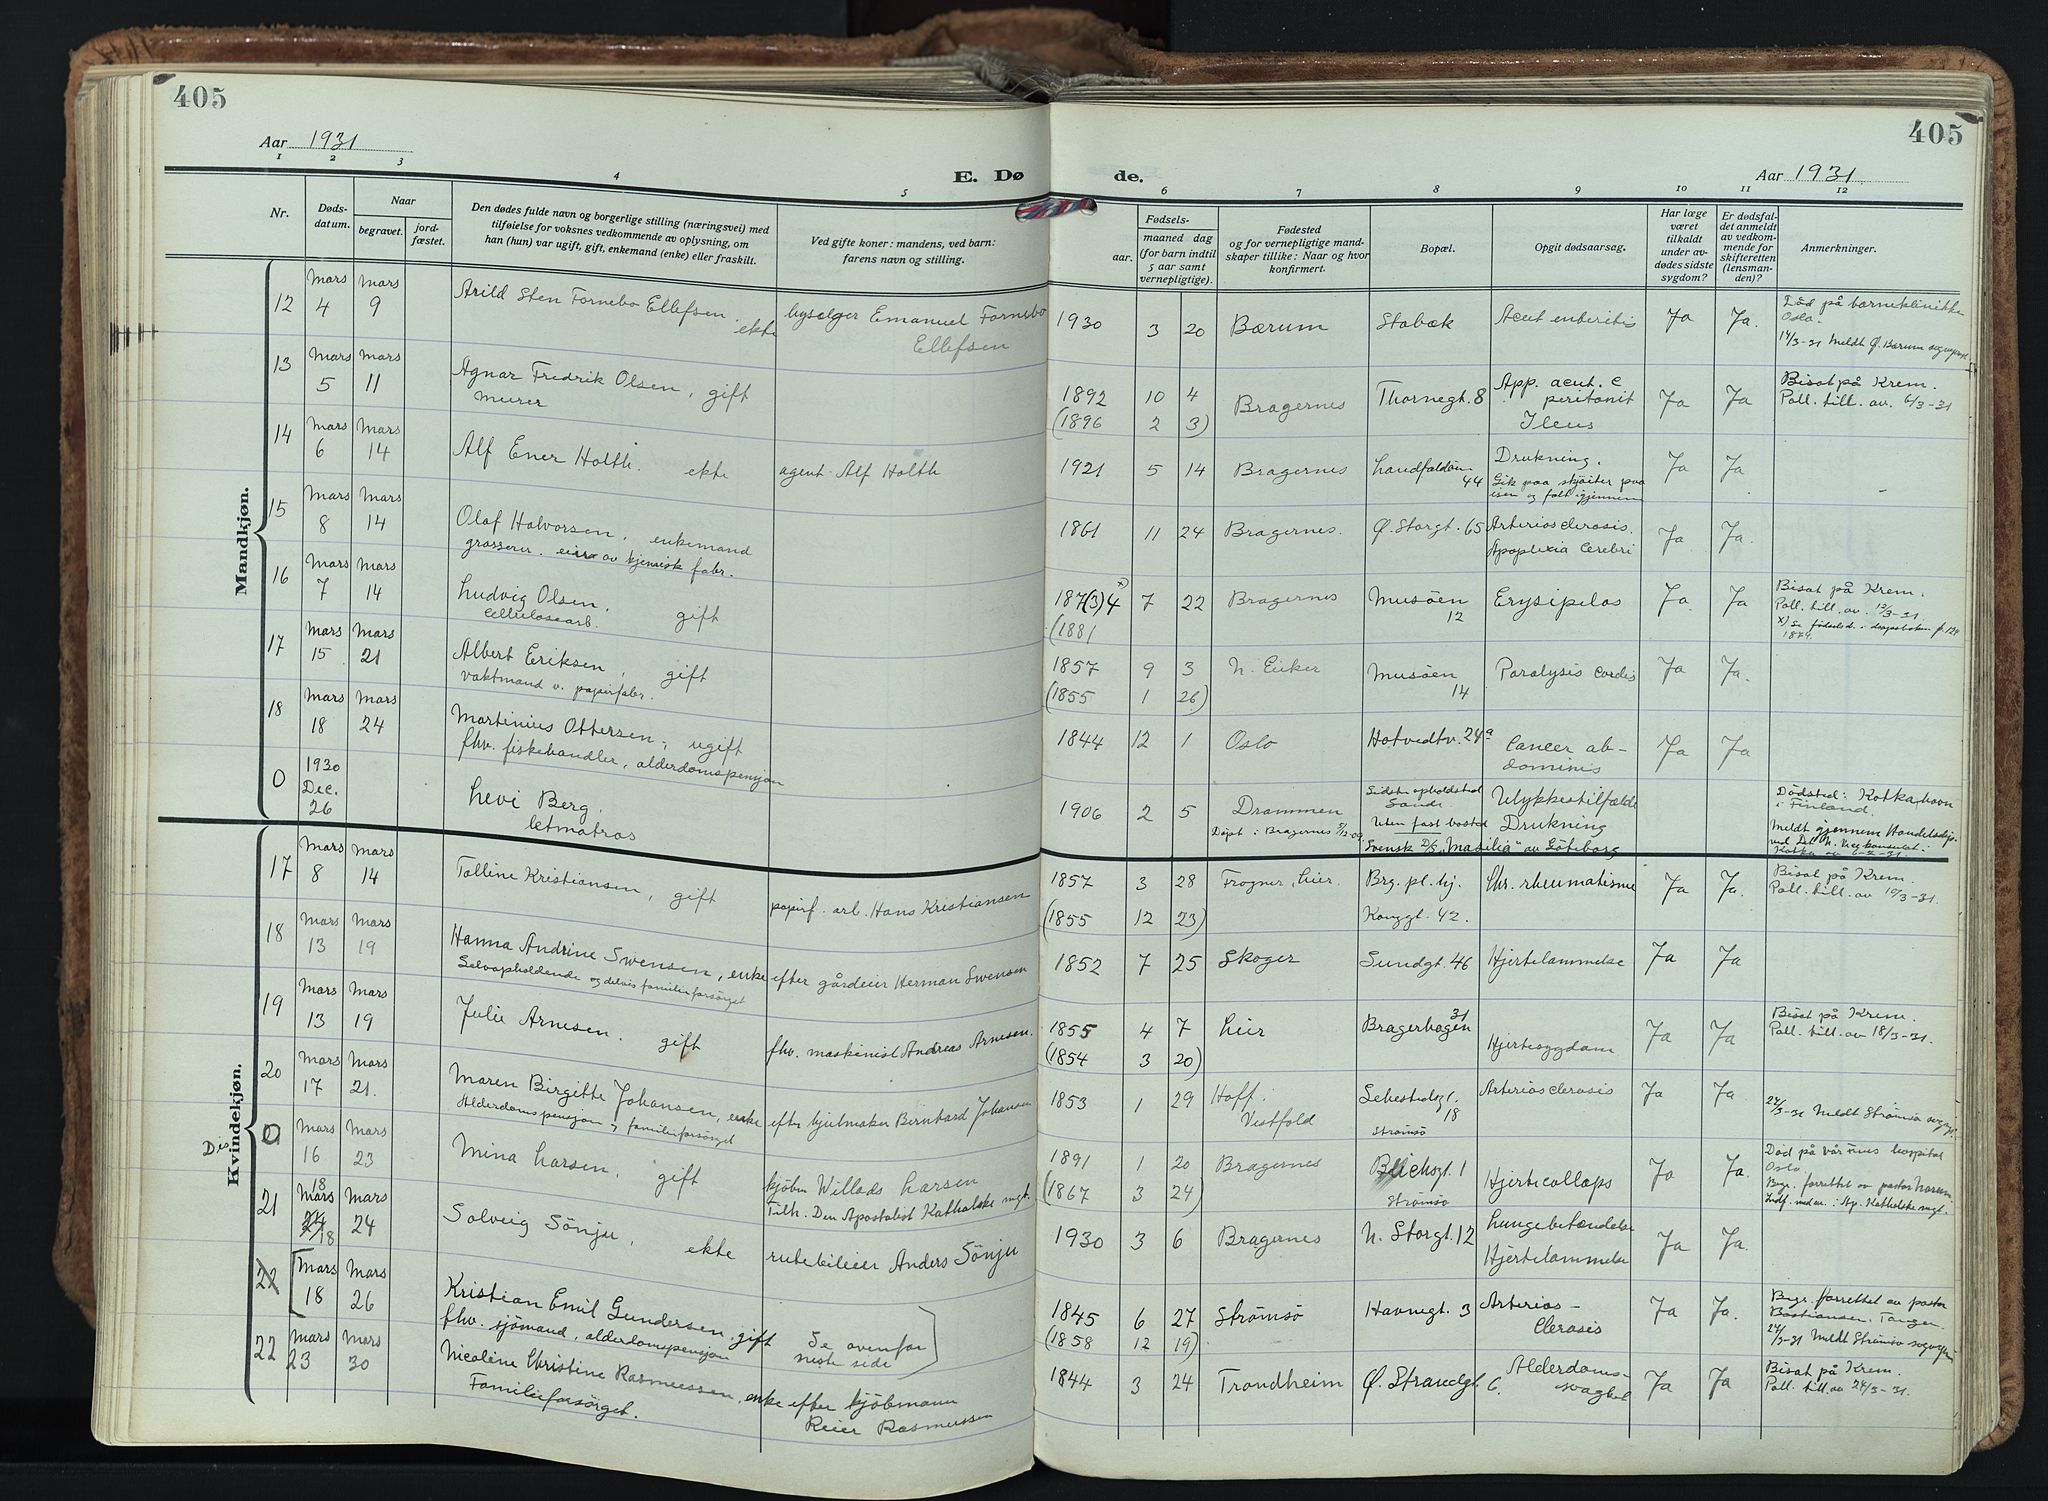 405
405
Aar 1931
Aar 1931
E. Dø de.
1 2 3 4 5 6 7 8 9 10 11 12
Nr.
Døds-
datum.
Naar
begravet.
jord-
fæstet.
Den dødes fulde navn og borgerlige stilling (næringsvei) med
tilføielse for voksnes vedkommende av oplysning, om
han (hun) var ugift, gift, enkemand (enke) eller fraskilt.
Ved gifte koner: mandens, ved barn:
farens navn og stilling.
Fødsels-
aar. maaned dag
(for barn indtil
5 aar samt
vernepligtige).
Fødested
og for vernepligtige mand-
skaper tillike: Naar og hvor
konfirmert.
Bopæl.
Opgit dødsaarsag.
Har læge
været
tilkaldt
under av-
dødes sidste
sygdom?
Er dødsfal-
det anmeldt
av vedkom-
mende for
skifteretten
(lensman-
den)?
Anmerkninger.
Mandkjøn.
12 Mars 4 Mars 9 Arild Sten Fornebo Ellefsen. ekte
bysælger Emanuel Fornebo
Ellefsen
1930 3 20 Bærum Stabæk Acut enteritis Ja Ja.
Død på barneklinikke
Oslo.
14/3-31 Meldt Ø. Bærum sogneprest
13 Mars 5 Mars 11 Agnar Fredrik Olsen, gift
murer
1892 10 4 Bragernes Thornegt. 8 App. acut. c
(1896 2 3) peritonit
Ileus
Ja Ja
Bisat på Krem.
Poll. till. av. 6/3-31
14 Mars 6 Mars 14 Alf Ener Holth. ekte agent Alf Holth
1921 5 14 Bragernes Landfaldøen 44 Drukning. Ja Ja
Gik paa skjøiter paa
isen og falt igjennem
15 Mars 8 Mars 14 Olaf Halvorsen, enkemand
grosserer. eier av kjemisk fabr.
1861 11 24 Bragernes. Ø. Storgt. 65 Arteriosclerosis. Ja Ja.
Apoplexia Cerebri
16 Mars 7 Mars 14 Ludvig Olsen, gift
Cellulosearb.
187(3)4 x) 7 22 Bragernes Musöen 12 Erysipelas Ja. Ja
(1881
Bisat på Krem.
Poll. till. av. 13/3-31
x) Se fødested. i daapsboken p. 124
1874.
17 Mars 15 Mars 21 Albert Eriksen, gift
vaktmand v. papirfabr.
1857 9 3 N. Eiker Musöen 14 Paralysis Cordis Ja Ja.
(1855 1 26)
18 Mars 18 Mars 24 Martinius Ottersen, ugift
fhv. fiskehandler, alderdomspensjon
1844 12 1 Oslo Hotvedtv. 24a Cancer ab-
dominis Ja Ja
0 1930 Dec. 26 Levi Berg.
letmatros
1906 2 5 Drammen
Døpt i Bragernes 5/12-09
Sidste opholdssted
Sande
Uten fast bosted
Svensk D/S "Masilia" av Göteborg
Ulykkestilfælde
Drukning
Dödsted: Kotka havn
i Finland.
Meldt gjennem Handelsdep.
ved Det N. Visekonsulat i
Kotka av 6-2-31.
Kvindekjøn.
17 Mars 8 Mars 14 Talline Kristiansen, gift papirf. arb. Hans Kristiansen
1857 3 28 Frogner, Lier. Brg. pl. hj. Chr. rheumatisme Ja Ja.
(1855 12 23) Konggt. 42.
Bisat på Krem.
Poll. till. av 10/3-31.
18 Mars 13 Mars 19 Hanna Andrine Swensen, enke efter gårdeier Herman Swensen
Selvopholdende og delvis familieforsørget
1852 7 25 Skoger Sundgt. 46 Hjertelammelse Ja Ja
19 Mars 13 Mars 19 Julie Arnesen. gift fhv. maskinist Andreas Arnesen.
1855 4 7 Lier Bragerhagen 31 Hjertesygdom Ja Ja
(1854 3 20)
Bisat på Krem.
Poll. till. av 18/3-31.
20 Mars 17 Mars 21. Maren Birgitte Johansen, enke efter hjulmaker Bernhard Johansen
Alderdomspensjon og familieforsørget
1853 1 29 Hoff i
Vestfold 18
Strömsö Arteriosclerosis Ja Ja.
24/3-31 Meldt Strömsö sogn.
Dis. 0 Mars 16 Mars 23 Mina Larsen, gift kjøbm Willads Larsen
Tilh. Den Apostolisk Katholske mgt.
1891 1 20 Bragernes Blichsgt. 1 Hjertecollaps Ja Ja.
(1867 3 24) Strömsö
Død på Vår Frues hospital
Oslo.
Begr. forrettet av pastor Norum
Indf. under. i Ap. Katholske mgt.
21 18 Mars 24/18 Mars 24 Solveig Sönju, ekte rutebileier Anders Sönju
1930 3 6 Bragernes N. Storgt. 12 Lungebetændelse
Hjertelammelse Ja Ja.
22 Mars 18 Mars 26 Kristian Emil Gundersen, gift
fhv. sjömand, alderdomspensjon
Se ovenfor
neste side
1845 6 27 Strömsö Havnegt. 3 Arterios-
clerosis Ja Ja.
(1858 12 19)
Begr. forrettet av pastor
Bastiansen. Tangen.
24/3-31 Meldt Strömsö sogn
22 Mars 23 Mars 30 Nicoline Christine Rasmussen, enke efter kjöbmann
Familieforsörget. Reier Rasmussen
1844 3 24 Trondheim Ø. Strandgt. 6. Alderdoms-
svaghet Ja Ja
Bisat på Krem.
Poll. till. av 24/3-31.